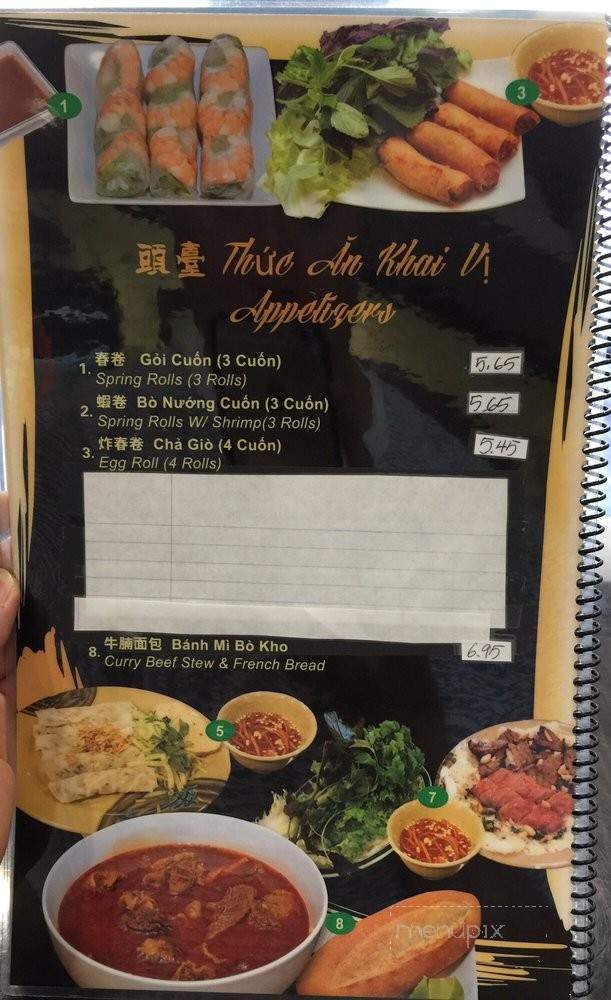 1
3
頭臺 Thức Ăn Khai Vị
Appetizers
1. 春卷 Gỏi Cuốn (3 Cuốn) 5.65
Spring Rolls (3 Rolls)
2. 蝦卷 Bò Nướng Cuốn (3 Cuốn) 5.65
Spring Rolls W/ Shrimp(3 Rolls)
3. 炸春卷 Chả Giò (4 Cuốn) 5.45
Egg Roll (4 Rolls)
8. 牛腩面包 Bánh Mì Bò Kho 6.95
Curry Beef Stew & French Bread
5
7
8
menupix